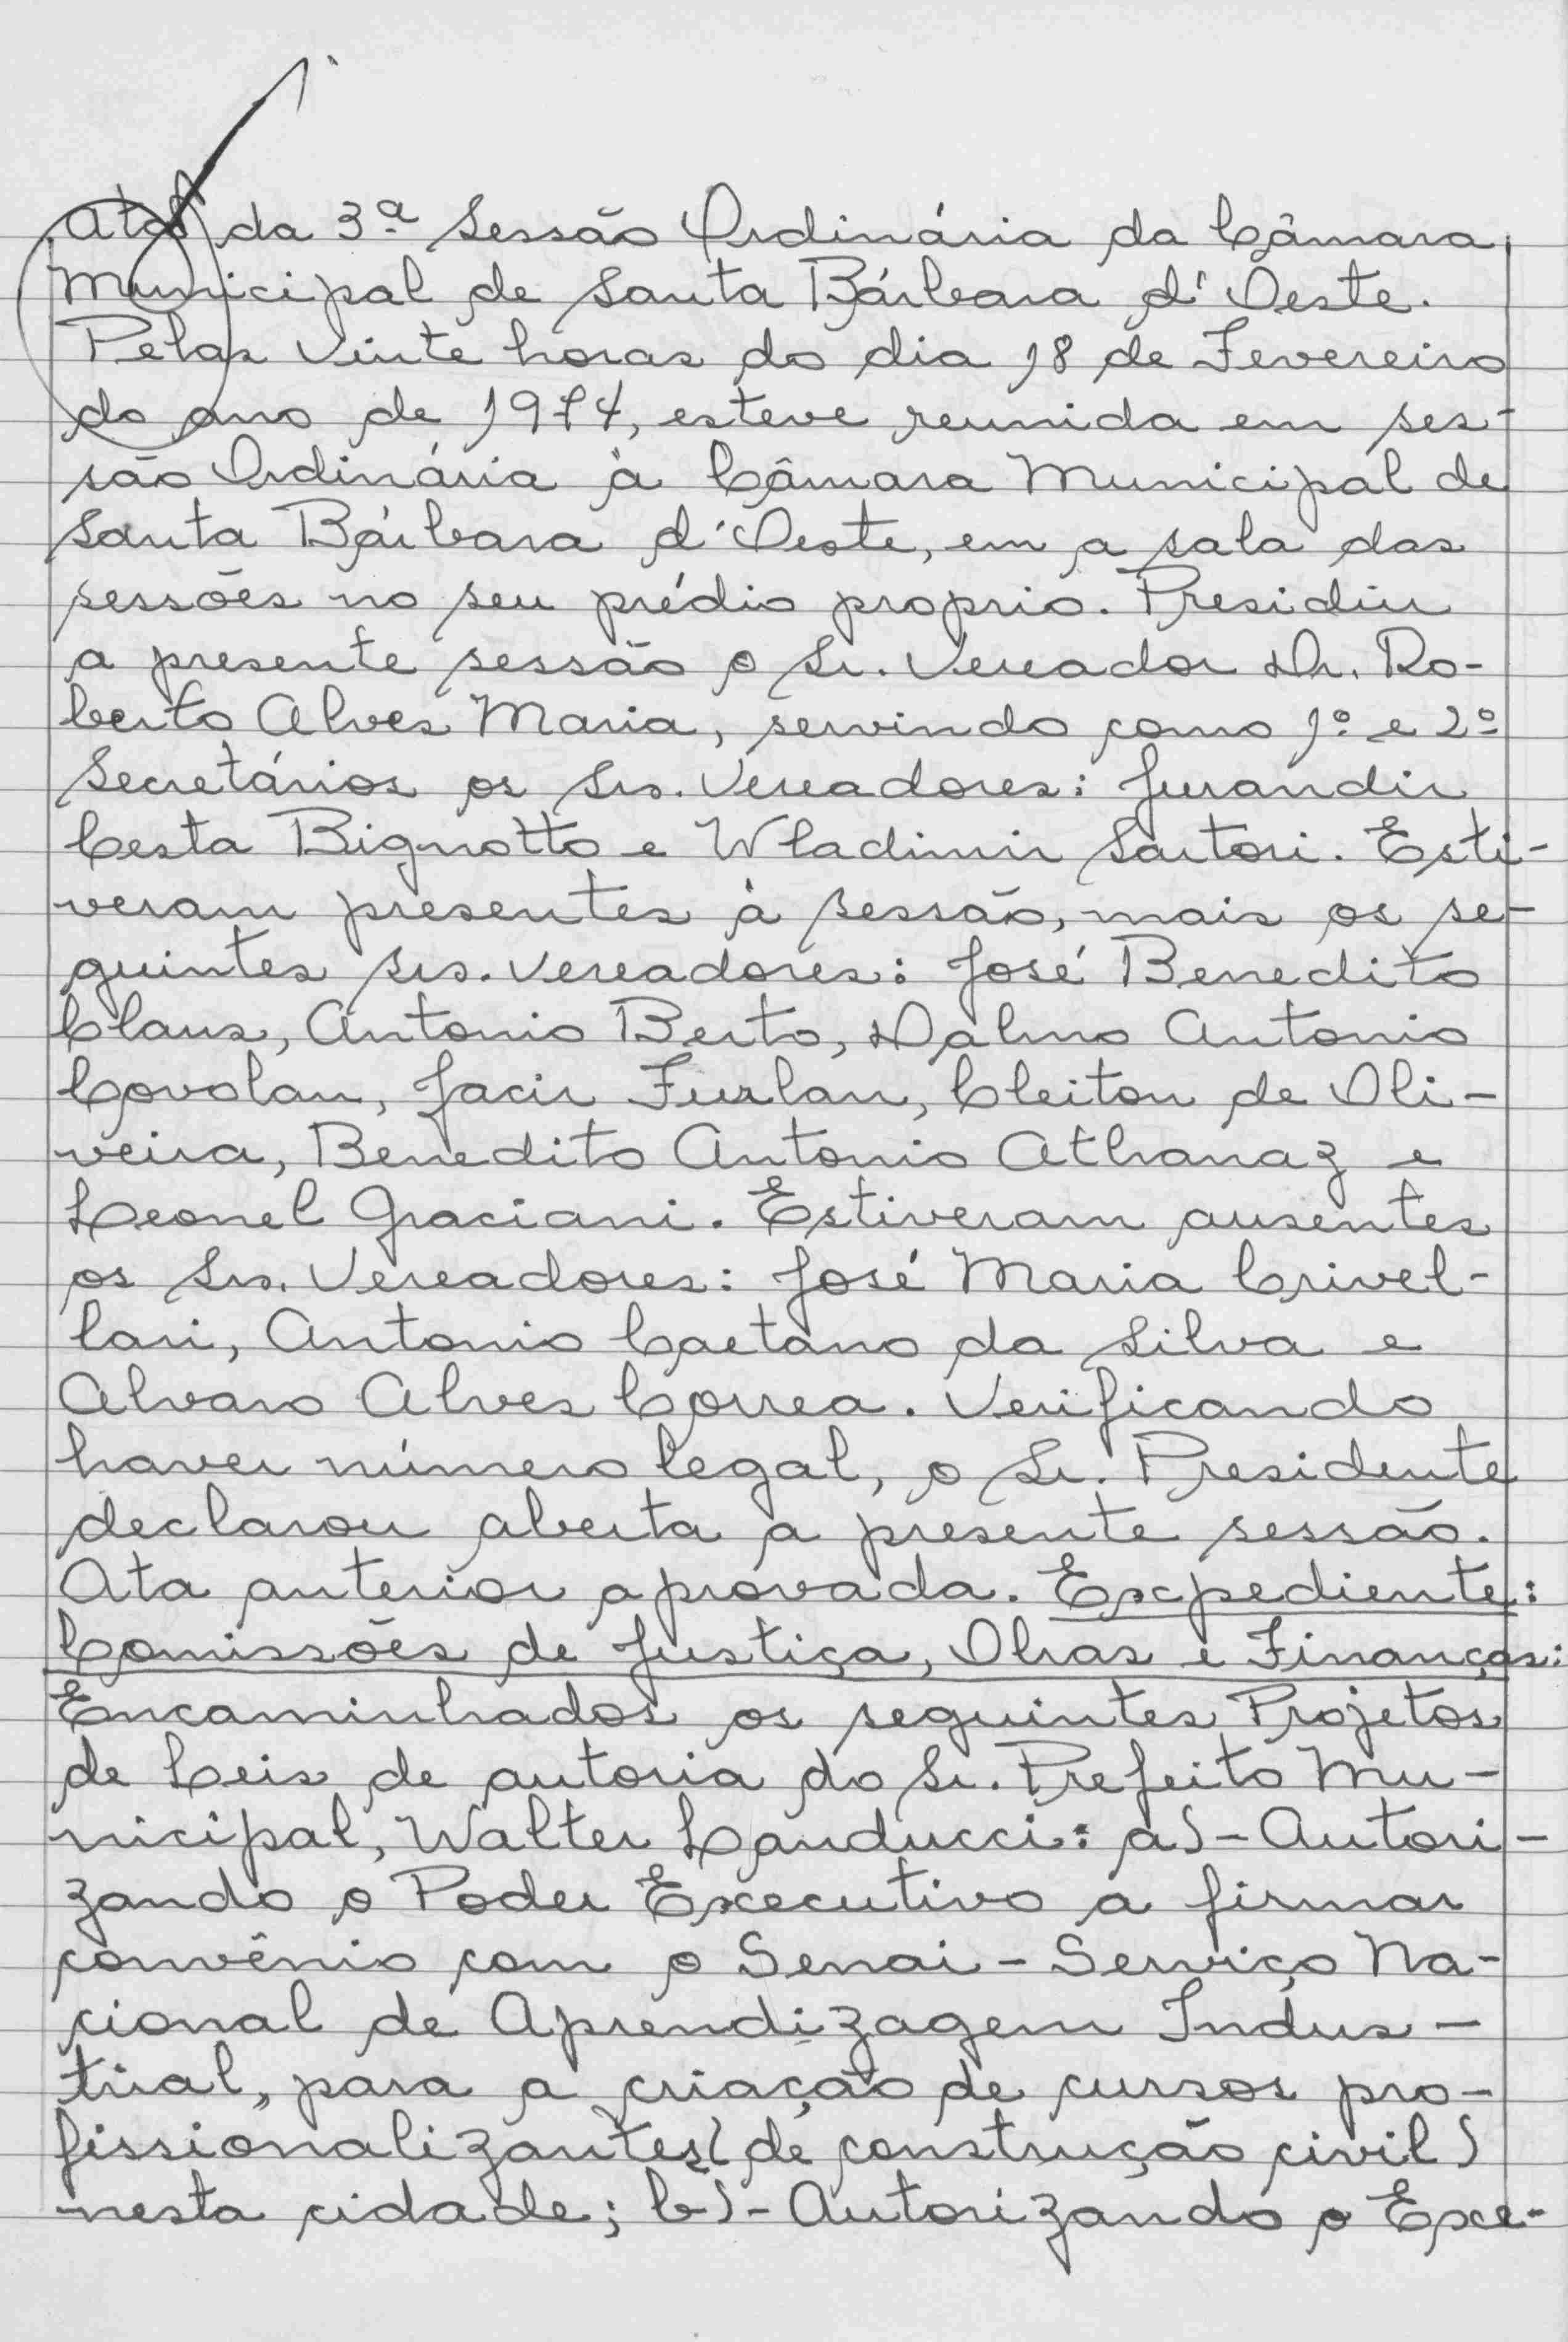 Ata da 3ª Sessão Ordinária da Câmara
Municipal de Santa Bárbara d'Oeste.
Pelas Vinte horas do dia 18 de Fevereiro
do ano de 1974, esteve reunida em ses-
são Ordinária à Câmara Municipal de
Santa Bárbara d'Oeste, em a sala das
sessões no seu prédio proprio. Presidiu
a presente sessão o Sr. Vereador Dr. Ro-
berto Alves Maria, servindo como 1º e 2º
Secretários os Srs. Vereadores: Jurandir
Cesta Bignotto e Wladimir Sartori. Esti-
veram presentes à sessão, mais os se-
guintes srs. Vereadores: José Benedito
Claus, Antonio Berto, Dalmo Antonio
Covolan, Jacir Furlan, Cleiton de Oli-
veira, Benedito Antonio Athanaz e
Leonel Graciani. Estiveram ausentes
os Srs. Vereadores: José Maria Crivel-
lari, Antonio Caetano da Silva e
Alvaro Alves Correa. Verificando
haver número legal, o Sr. Presidente
declarou aberta a presente sessão.
Ata anterior aprovada. Expediente:
Comissões de Justiça, Obras e Finanças:
Encaminhados os seguintes Projetos
de Leis de autoria do Sr. Prefeito Mu-
nicipal, Walter Landucci: a)-Autori-
zando o Poder Executivo a firmar
convênio com o Senai-Serviço Na-
cional de Aprendizagem Indus-
trial, para a criação de cursos pro-
fissionalizantes(de construção civil)
nesta cidade; b)-Autorizando o Exe-